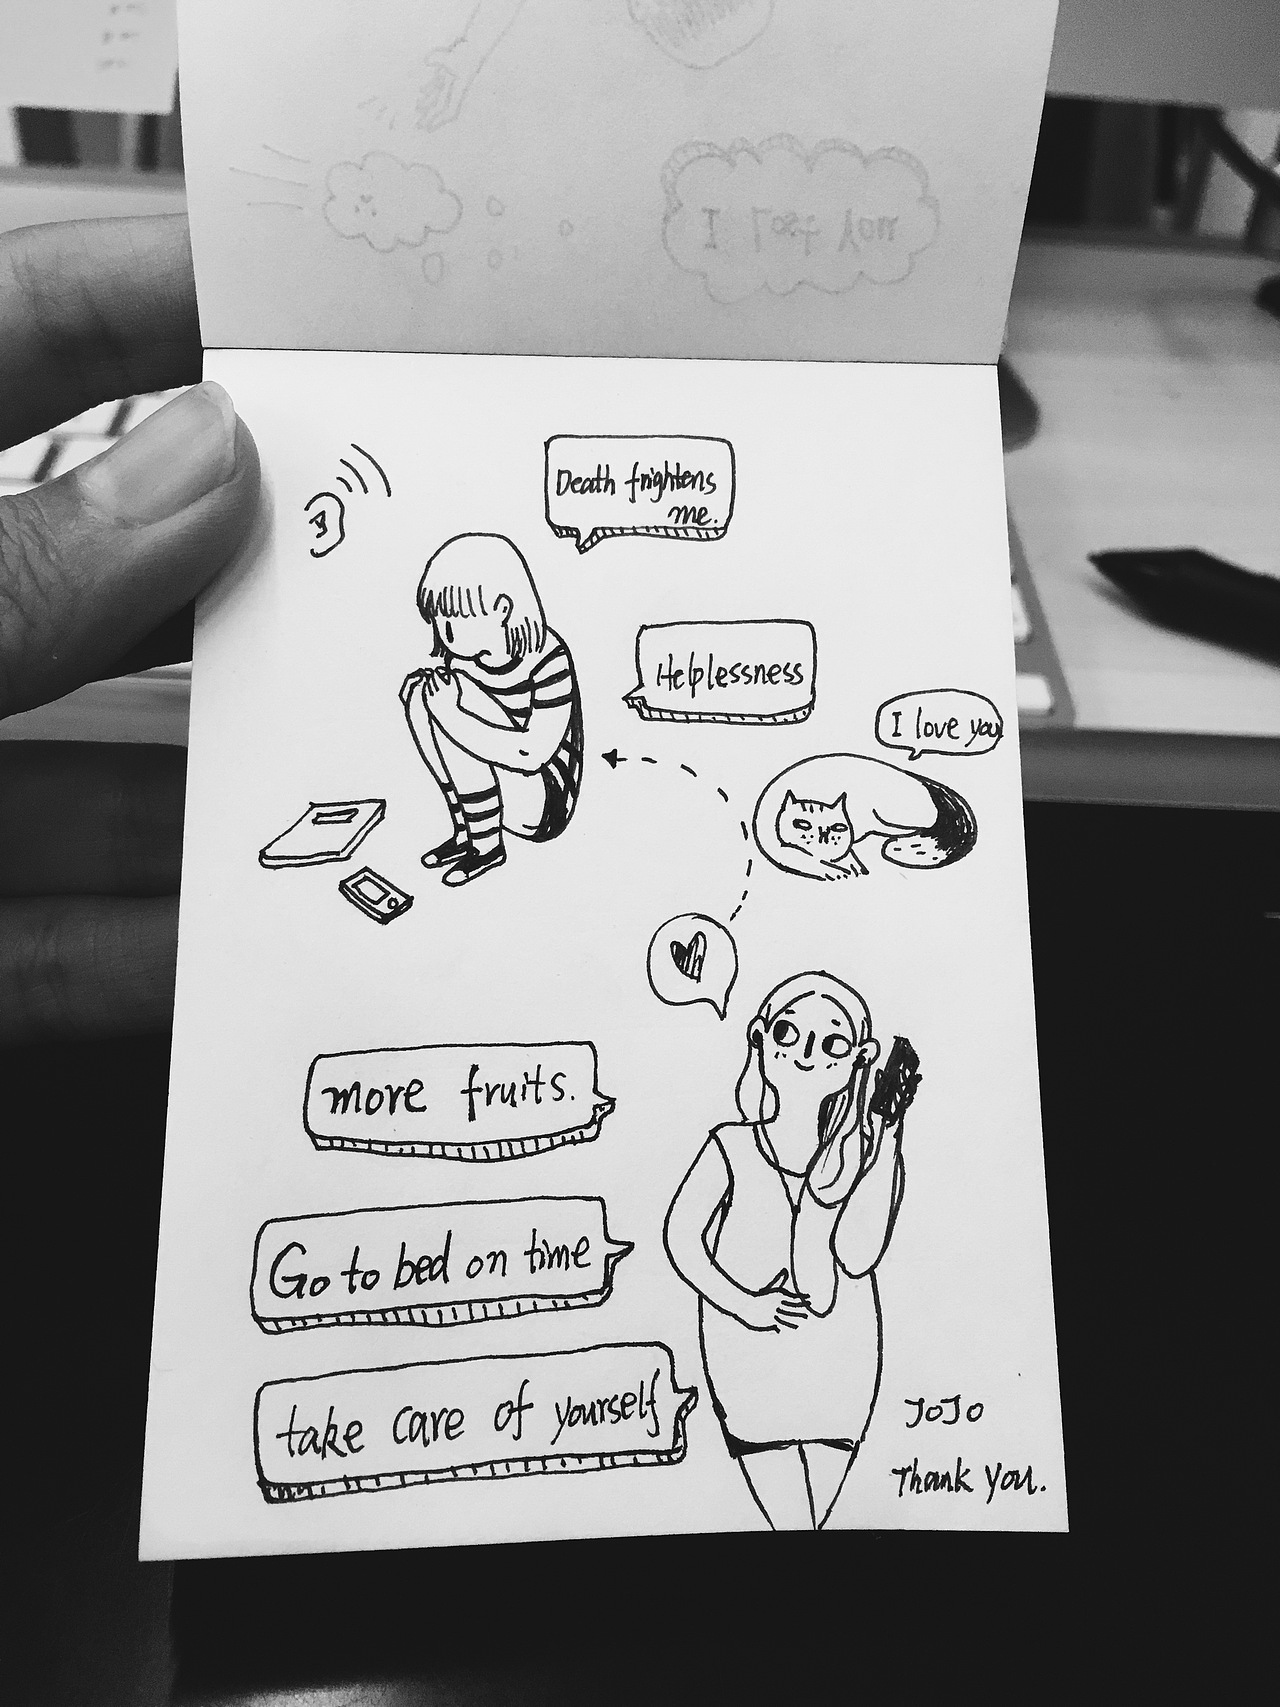 I lost you
Death frightens
me.
Helplessness
I love you
more fruits.
Go to bed on time
take care of yourself
JoJo
Thank you.